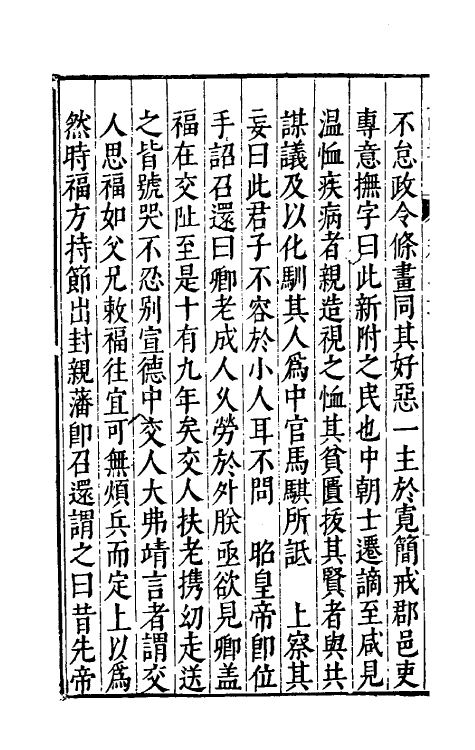 不怠政令條畫同其好惡一主於寛簡戒郡邑吏
專意撫字曰此新附之民也中朝士遷謫至咸見
温恤疾病者親造視之恤其貧匱拔其賢者與共
謀議及以化馴其人爲中官馬騏所詆　上察其
妄曰此君子不容於小人耳不問　昭皇帝卽位
手詔召還曰卿老成人久勞於外朕亟欲見卿盖
福在交阯至是十有九年矣交人扶老携幼走送
之皆號哭不忍别宣德中交人大弗靖言者謂交
人思福如父兄敕福往宜可無煩兵而定上以爲
然時福方持節出封親藩卽召還謂之曰昔先帝